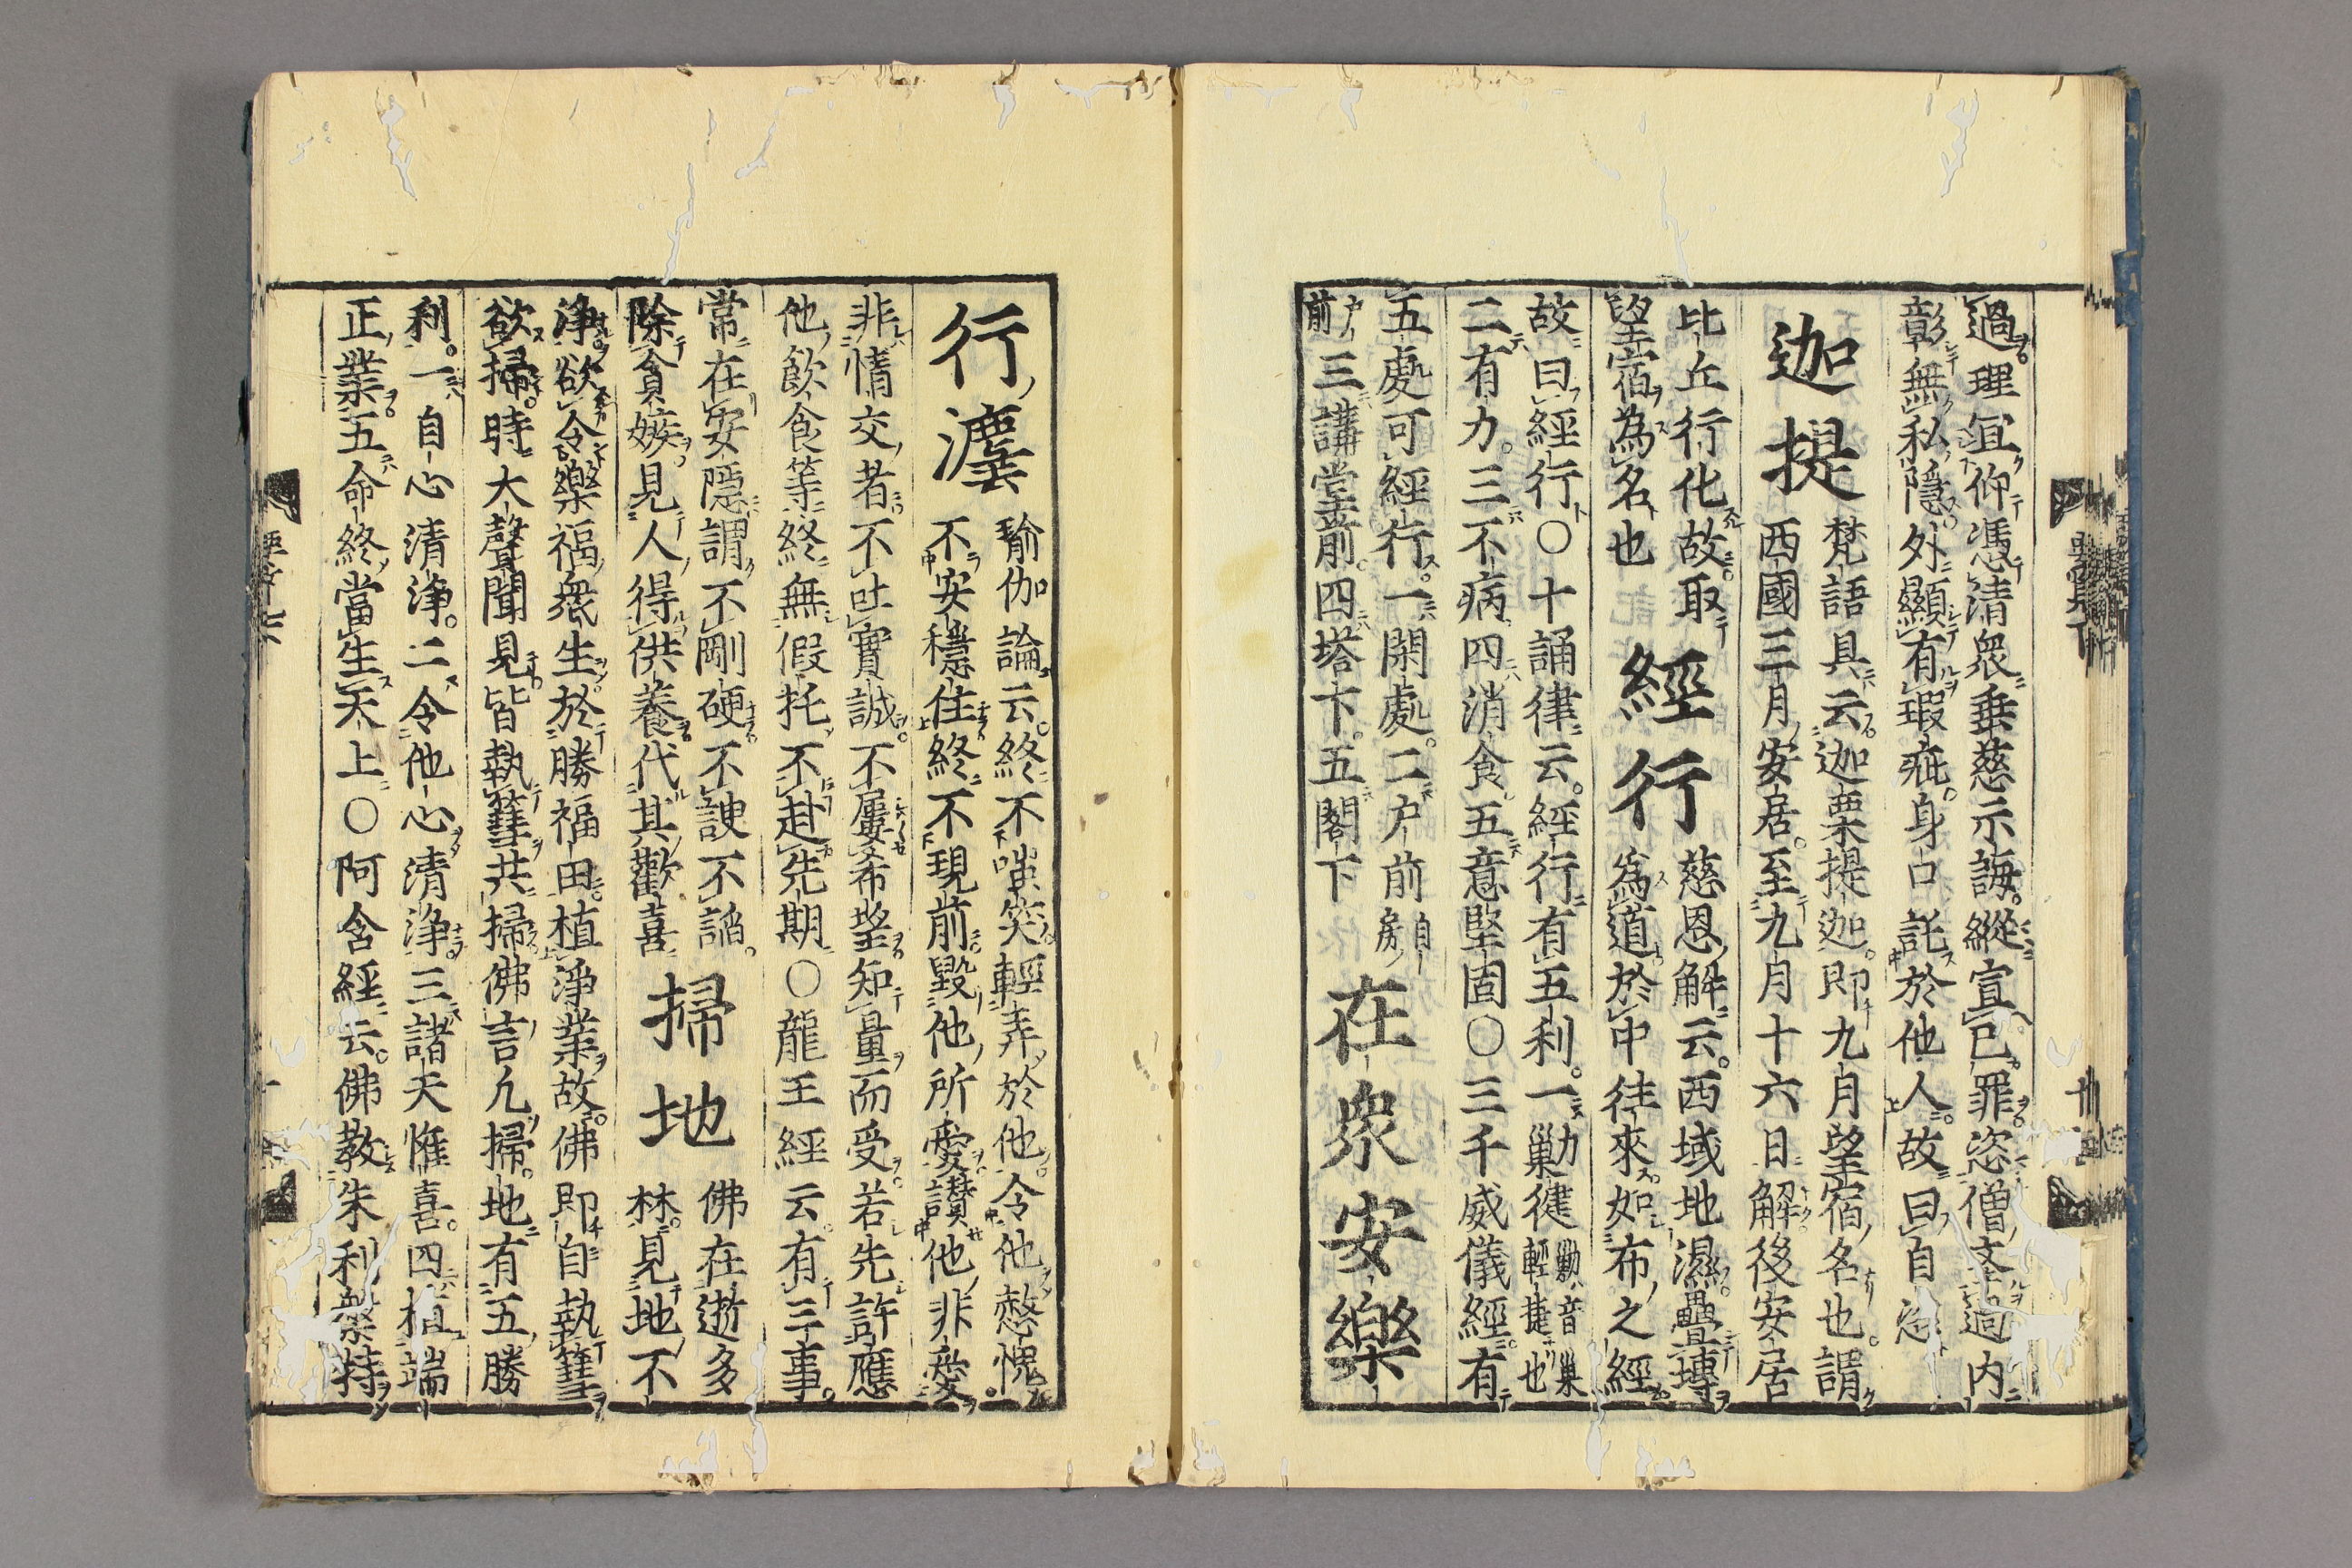 過理宜仰憑清衆垂慈示誨縱宣已罪恣僧内
彰無私隱外顯有瑕疵身口託於他人故曰自恣
迦提
梵語具云迦栗提迦即九月望宿名也謂
西國三月安居至九月十六日解後安居
比丘行化故取
望宿為名也
經行
慈恩解云西域地濕疊塼
為道於中往來如布之經
故曰經行〇十誦律云經行有五利一勦健
勦音巢
輕捷也
二有力三不病四消食五意堅固〇三千威儀經有
五處可經行一閑處二户前
自房
户前
三講堂前四塔下五閣下
在衆安樂
行
瑜伽論云終不嗤笑輕弄於他令他愁愧
不安穩住終不現前毀他所愛讃他非愛
非情交者不吐實誠不屢希望知量而受若先許應
他飲食等終無假托不赴先期〇龍王經云有三事
常在安隱謂不剛硬不諛不諂
除貪嫉見人得供養代其歡喜
掃地
佛在逝多
林見地不
淨欲令樂福衆生於勝福田植淨業故佛即自執篲
欲掃時大聲聞見皆執篲共掃佛言凡掃地有五勝
利一自心清淨二令他心清淨三諸天惟喜四植端
正業五命終當生天上〇阿含經云佛教朱利槃特